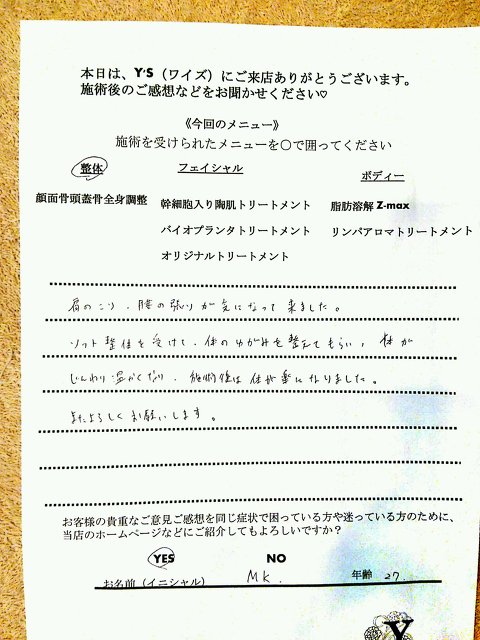 本日は、Y'S（ワイズ）にご来店ありがとうございます。
施術後のご感想などをお聞かせください♡
《今回のメニュー》
施術を受けられたメニューを〇で囲ってください
整体 フェイシャル ボディー
顔面骨頭蓋骨全身調整 幹細胞入り陶肌トリートメント 脂肪溶解 Z-max
バイオプランタトリートメント リンパアロマトリートメント
オリジナルトリートメント
肩のこり、腰の張りが気になって来ました。
ソフト整体を受けて、体のゆがみを整えてもらい、体が
じんわり温かくなり、施術後は体が楽になりました。
またよろしくお願いします。
お客様の貴重なご意見ご感想を同じ症状で困っている方や迷っている方のために、
当店のホームページなどにご紹介してもよろしいですか？
YES NO
お名前（イニシャル） MK. 年齢 27.
Y